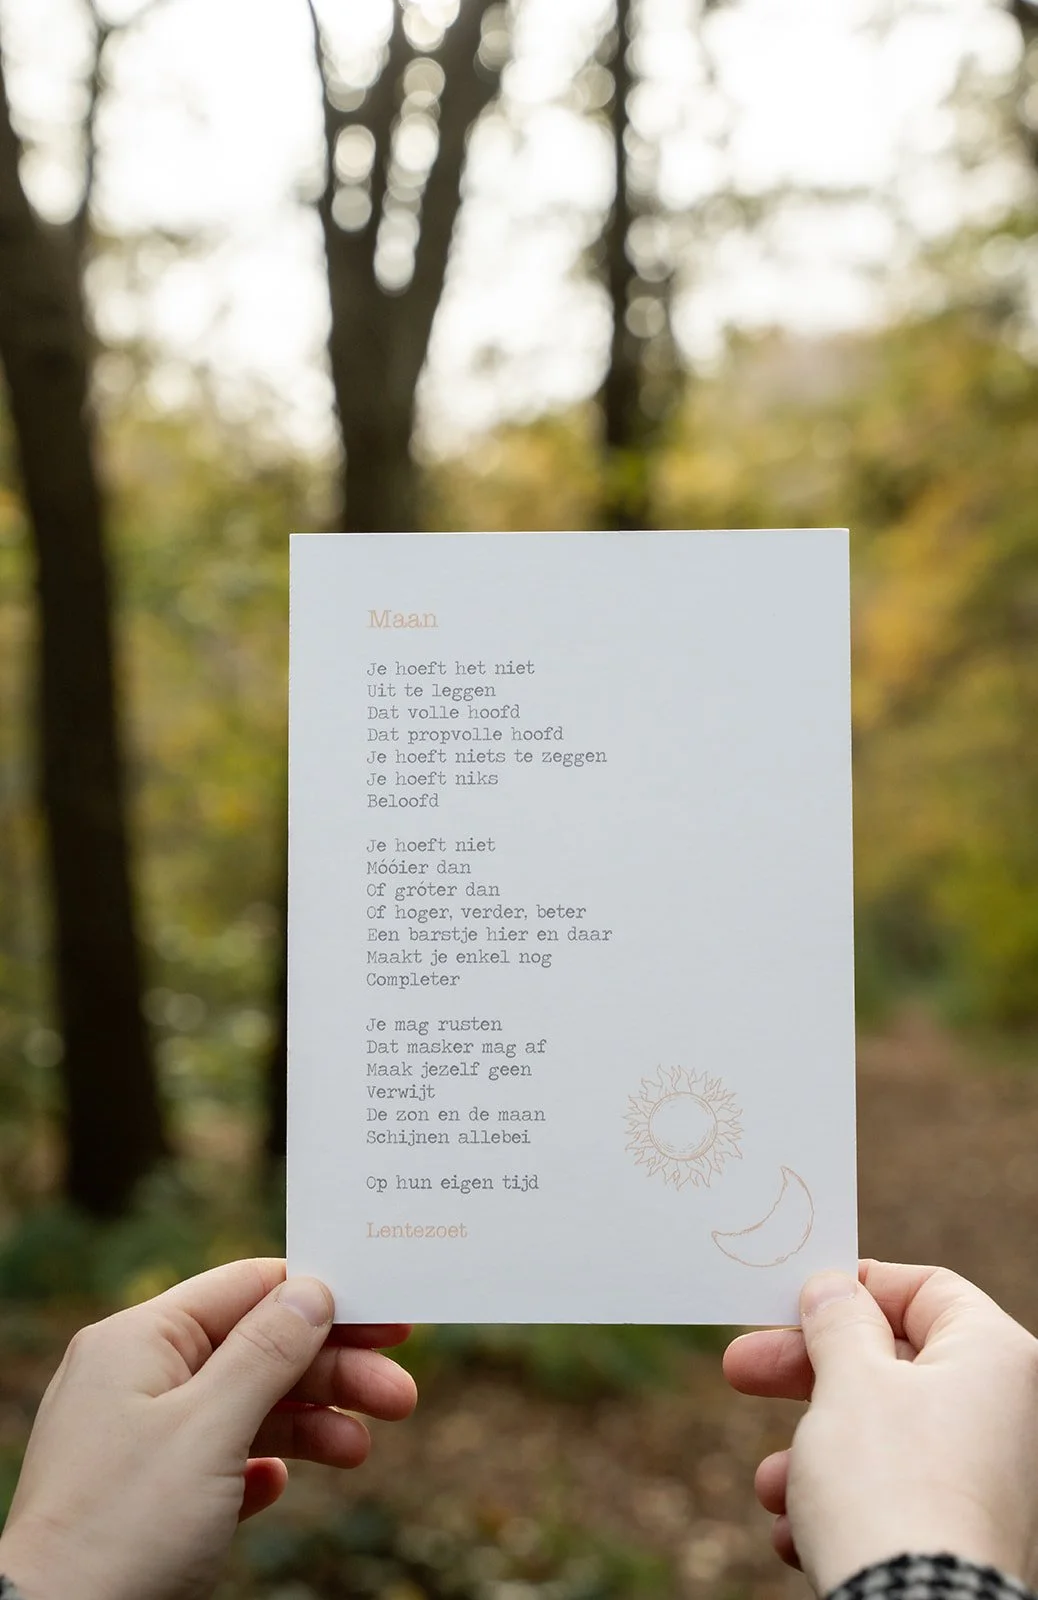 Maan
Je hoeft het niet
Uit te leggen
Dat volle hoofd
Dat propvolle hoofd
Je hoeft niets te zeggen
Je hoeft niks
Beloofd
Je hoeft niet
Móóier dan
Of gróter dan
Of hoger, verder, beter
Een barstje hier en daar
Maakt je enkel nog
Completer
Je mag rusten
Dat masker mag af
Maak jezelf geen
Verwijt
De zon en de maan
Schijnen allebei
Op hun eigen tijd
Lentezoet